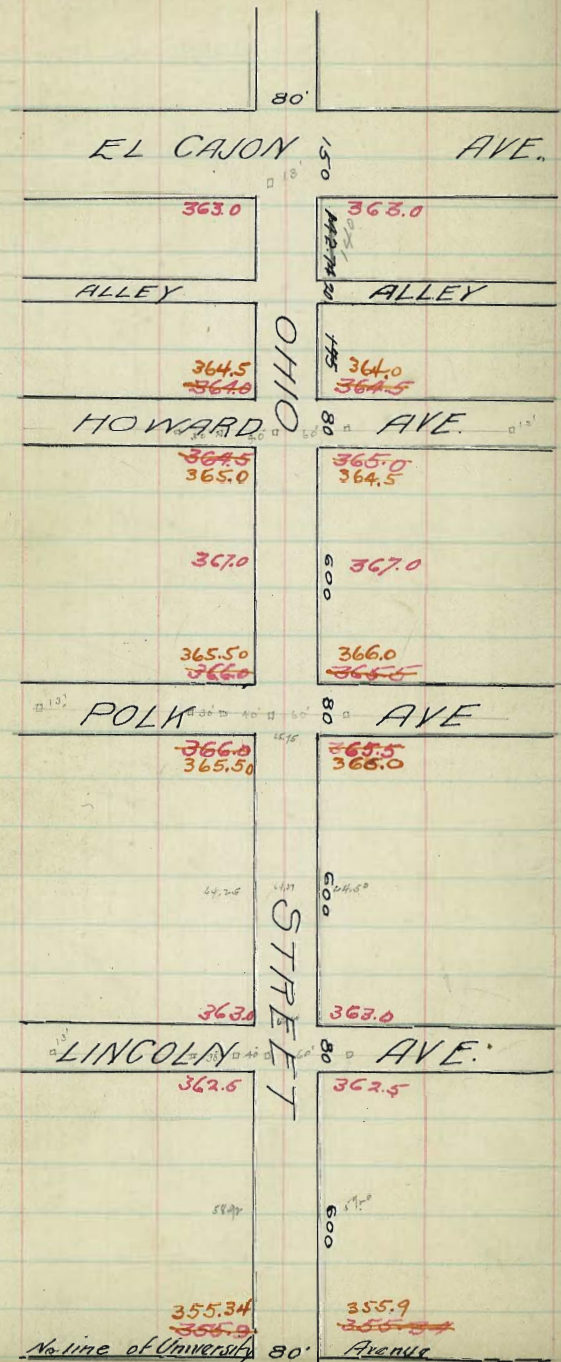 80'
EL CAJON 150 AVE.
13'
363.0 363.0
142.74 140
ALLEY 20 ALLEY
OHIO
145
364.5 364.0
364.0 364.5
HOWARD 80 AVE.
364.5 365.0
365.0 364.5
367.0 600 367.0
365.50 366.0
366.0 365.5
13' POLK 30' 40' 60' 80 AVE
366.0 365.5
365.50 366.0
600
STREET
363.0 363.0
13' LINCOLN 38' 40' 60' 80 AVE.
362.5 362.5
600
355.34 355.9
355.9 355.34
No. line of University 80' Avenue